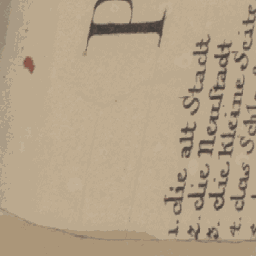 P
1. die alt Stadt
2. die Neustadt
3. die kleine Seite
4. das